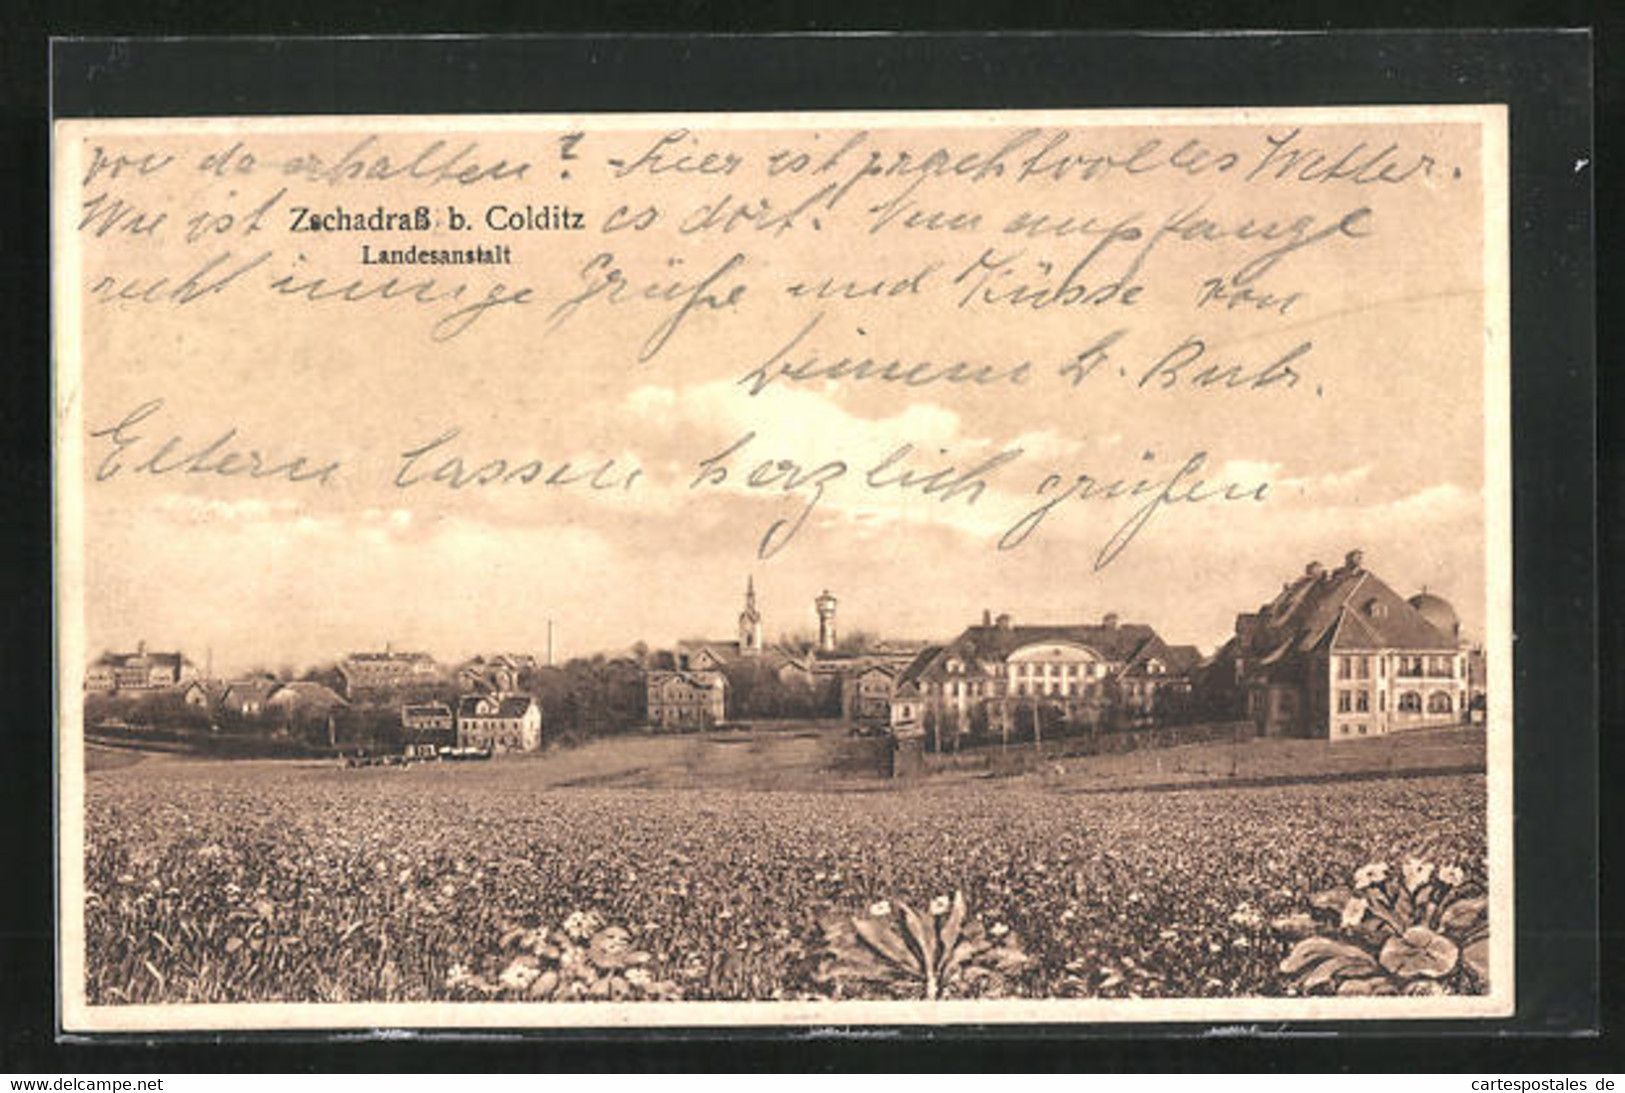 von da erhalten? Hier ist prachtvolles Wetter.
Wie ist es dort? Nun empfange
Zschadraß b. Colditz
Landesanstalt
recht innige Grüße und Küsse von
Deinem lb.
Eltern lassen herzlich grüßen
www.delcampe.net
cartespostales de